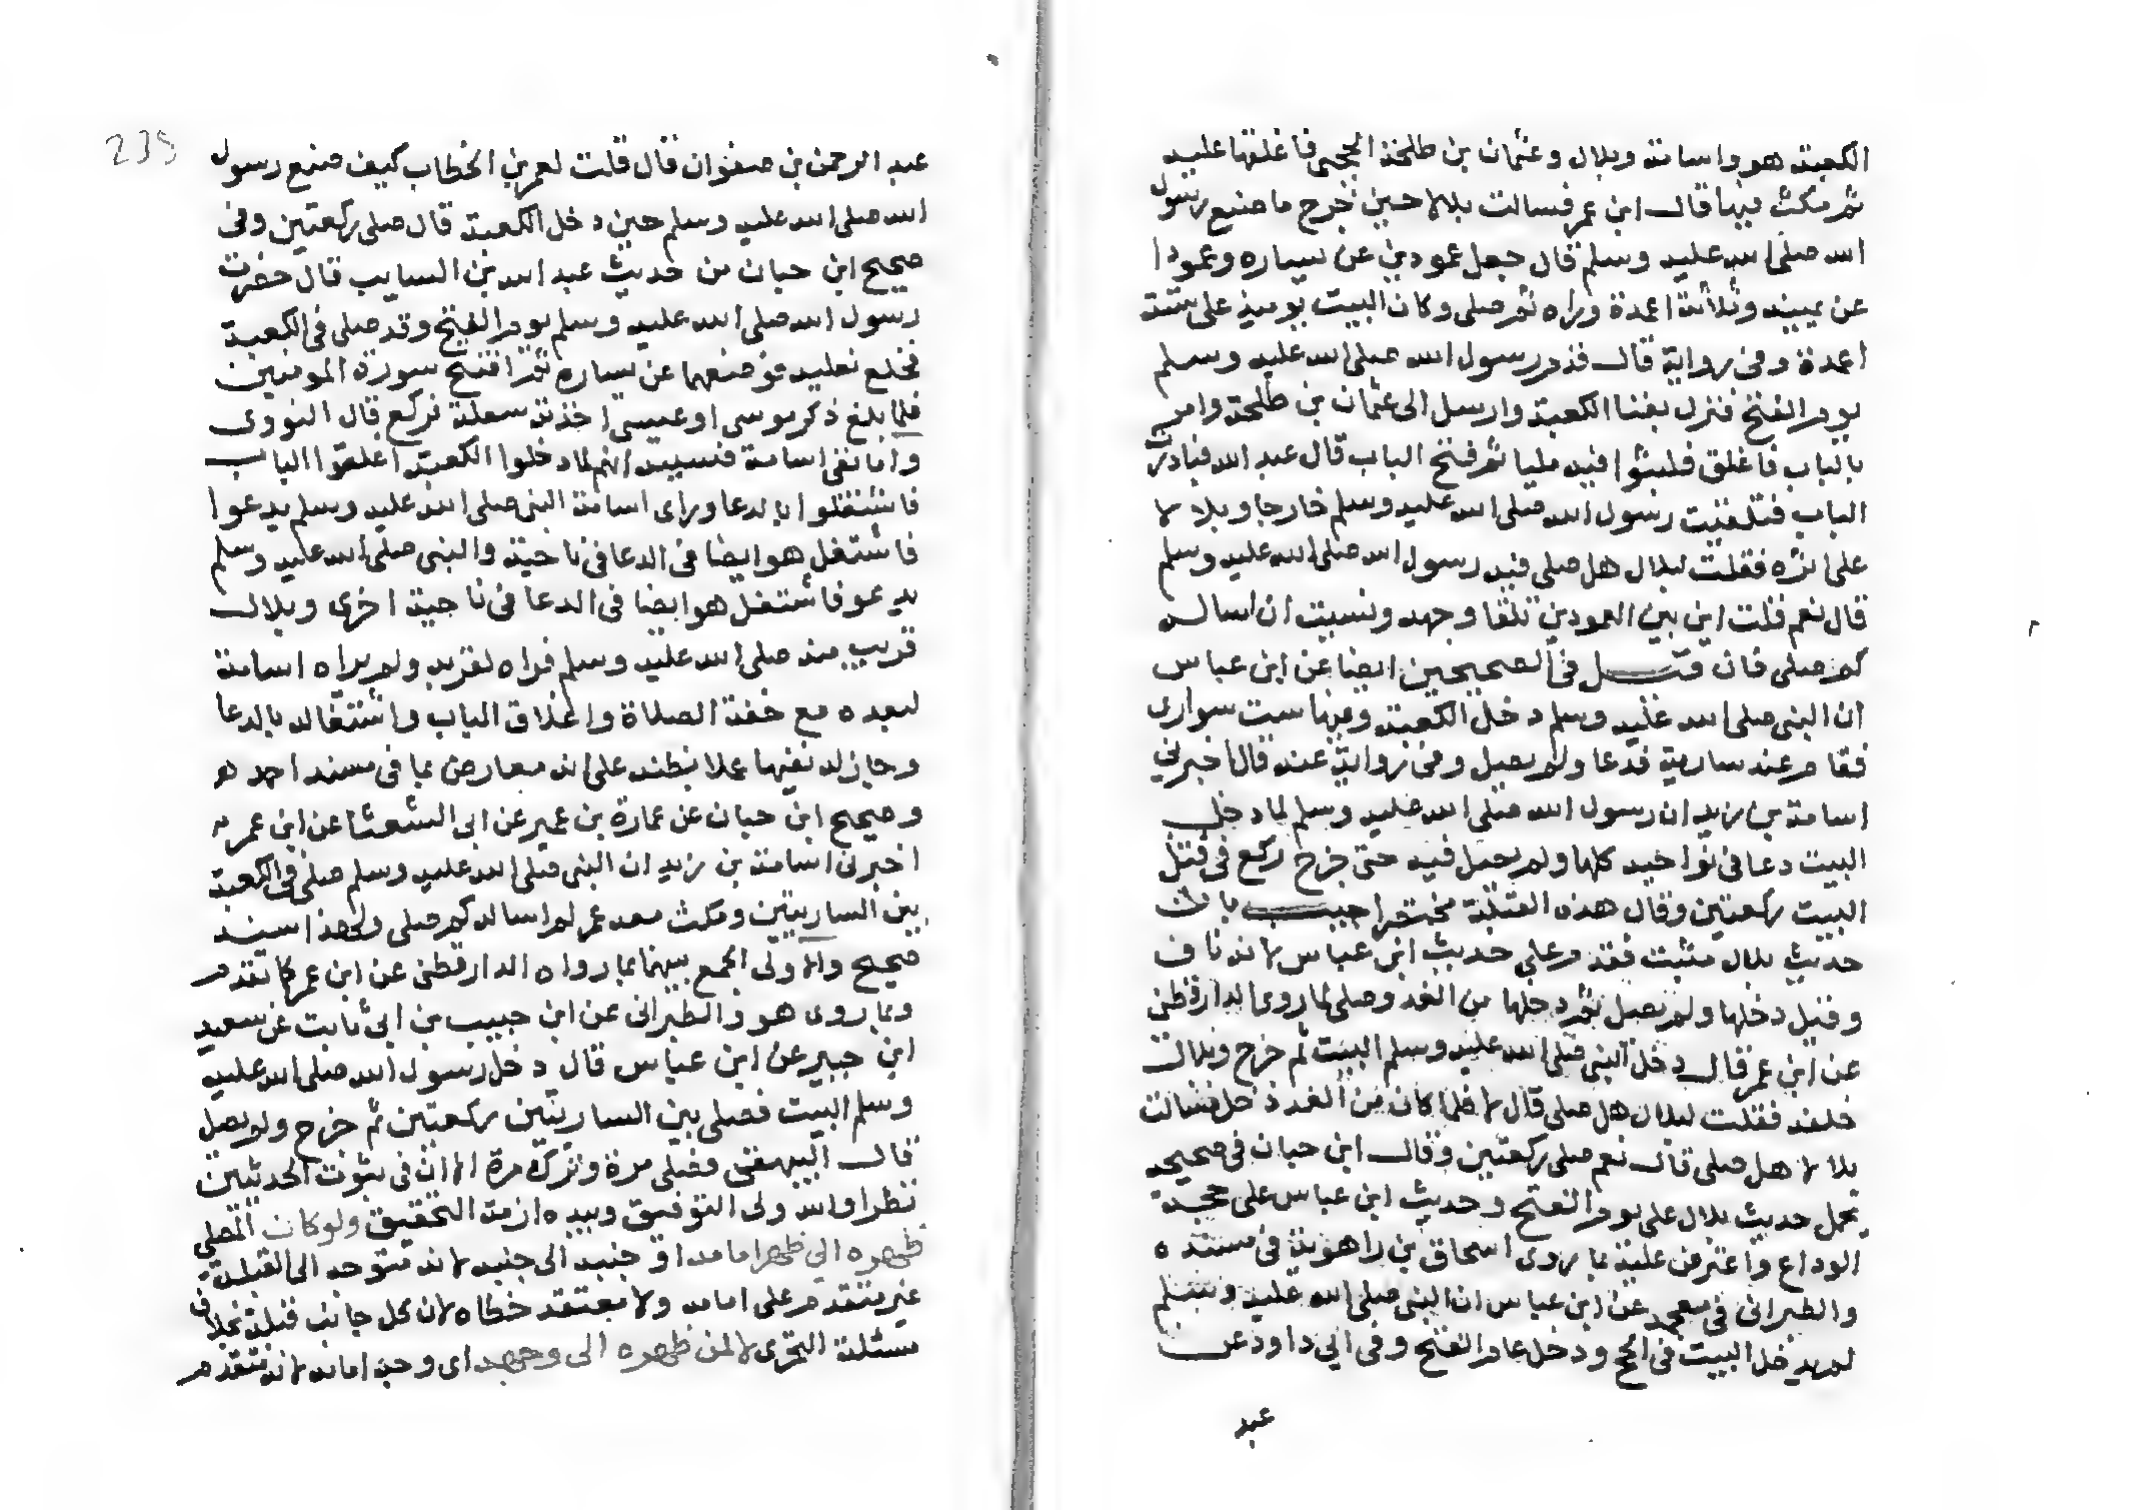 الكعبة هو واسامة وبلال وعثمان بن طلحة الحجبي فاغلقها عليه
ثم مكث فيها قال ابن عمر فسالت بلالا حين خرج ما صنع رسول
الله صلى الله عليه وسلم قال جعل عمودين عن يساره وعمودا
عن يمينه وثلاثة اعمدة وراه ثم صلى وكان البيت يوميذ على ستة
اعمدة وفي رواية قال قدم رسول الله صلى الله عليه وسلم
يوم الفتح فنزل بفنا الكعبة وارسل الى عثمان بن طلحة وامر
بالباب فاغلق فلبثوا فيه مليا ثم فتح الباب قال عبد الله فبادرت
الباب فتلقيت رسول الله صلى الله عليه وسلم خارجا وبلالا
على اثره فقلت لبلال هل صلى فيه رسول الله صلى الله عليه وسلم
قال نعم قلت اين بين العمودين تلقا وجهه ونسيت ان اساله
كم صلى فان قيل في الصحيحين ايضا عن ابن عباس
ان النبي صلى الله عليه وسلم دخل الكعبة وفيها ست سواري
فقام عند سارية فدعا ولم يصل وفي رواية عنه قال اخبرني
اسامة بن زيد ان رسول الله صلى الله عليه وسلم لما دخل
البيت دعا في نواحيه كلها ولم يصل فيه حتى خرج ركع في قبل
البيت ركعتين وقال هذه القبلة مختصرا اجيب بان
حديث بلال مثبت فقدم على حديث ابن عباس لانه ناف
وقيل دخلها ولم يصل ثم دخلها من الغد وصلى لما روى الدارقطني
عن ابن عمر قال دخل النبي صلى الله عليه وسلم البيت ثم خرج وبلال
خلفه فقلت لبلال هل صلى قال لا فلما كان من الغد دخل فسالت
بلالا هل صلى قال نعم صلى ركعتين وقال ابن حبان في صحيحه
يحمل حديث بلال على يوم الفتح وحديث ابن عباس على حجة
الوداع واعترض عليه بما روى اسحاق بن راهوية في مسنده
والطبراني في معجمه عن ابن عباس ان النبي صلى الله عليه وسلم
لم يدخل البيت في الحج ودخل عام الفتح وفي ابي داود عن
عبد
235
عبد الرحمن بن صفوان قال قلت لعمر بن الخطاب كيف صنع رسول
الله صلى الله عليه وسلم حين دخل الكعبة قال صلى ركعتين وفي
صحيح ابن حبان من حديث عبد الله بن السايب قال حضرت
رسول الله صلى الله عليه وسلم يوم الفتح وقد صلى في الكعبة
فخلع نعليه فوضعهما عن يساره ثم افتتح سورة المومنين
فلما بلغ ذكر موسى او عيسى اخذته سعلة فركع قال النووي
واما نفي اسامة فسببه انهم لما دخلوا الكعبة اغلقوا الباب
فاشتغلوا بالدعا وراى اسامة النبي صلى الله عليه وسلم يدعوا
فاشتغل هو ايضا في الدعا في ناحية والنبي صلى الله عليه وسلم
يدعو فاشتغل هو ايضا في الدعا في ناحية اخرى وبلال
قريب منه صلى الله عليه وسلم فراه لقربه ولم يراه اسامة
لبعده مع خفة الصلاة واغلاق الباب واشتغاله بالدعا
وجاز له نفيها عملا بظنه على انه معارض بما في مسند احمد
وصحيح ابن حبان عن عمارة بن عمير عن ابي الشعثا عن ابن عمر
اخبرني اسامة بن زيد ان النبي صلى الله عليه وسلم صلى في الكعبة
بين الساريتين ومكث معه عمر لم اساله كم صلى وهذا سند
صحيح والاولى الجمع بينهما بما رواه الدارقطني عن ابن عمر كما تقدم
وبما روى هو والطبراني عن ابن حبيب بن ابي ثابت عن سعيد
ابن جبير عن ابن عباس قال دخل رسول الله صلى الله عليه
وسلم البيت فصلى بين الساريتين ركعتين ثم خرج ولم يصل
قال البيهقي فصلى مرة وترك مرة الا ان في ثبوت الحديثين
نظرا والله ولى التوفيق وبيده ازمة التحقيق ولو كان المصلي
ظهره الى ظهر امامه او جنبه الى جنبه لانه متوجه الى القبلة
غير متقدم على امامه ولا معتقد خطاه لان كل جانب قبلة بخلاف
مسئلة التحرى لا لمن ظهره الى وجهه اى وجه امامه لانه متقدم